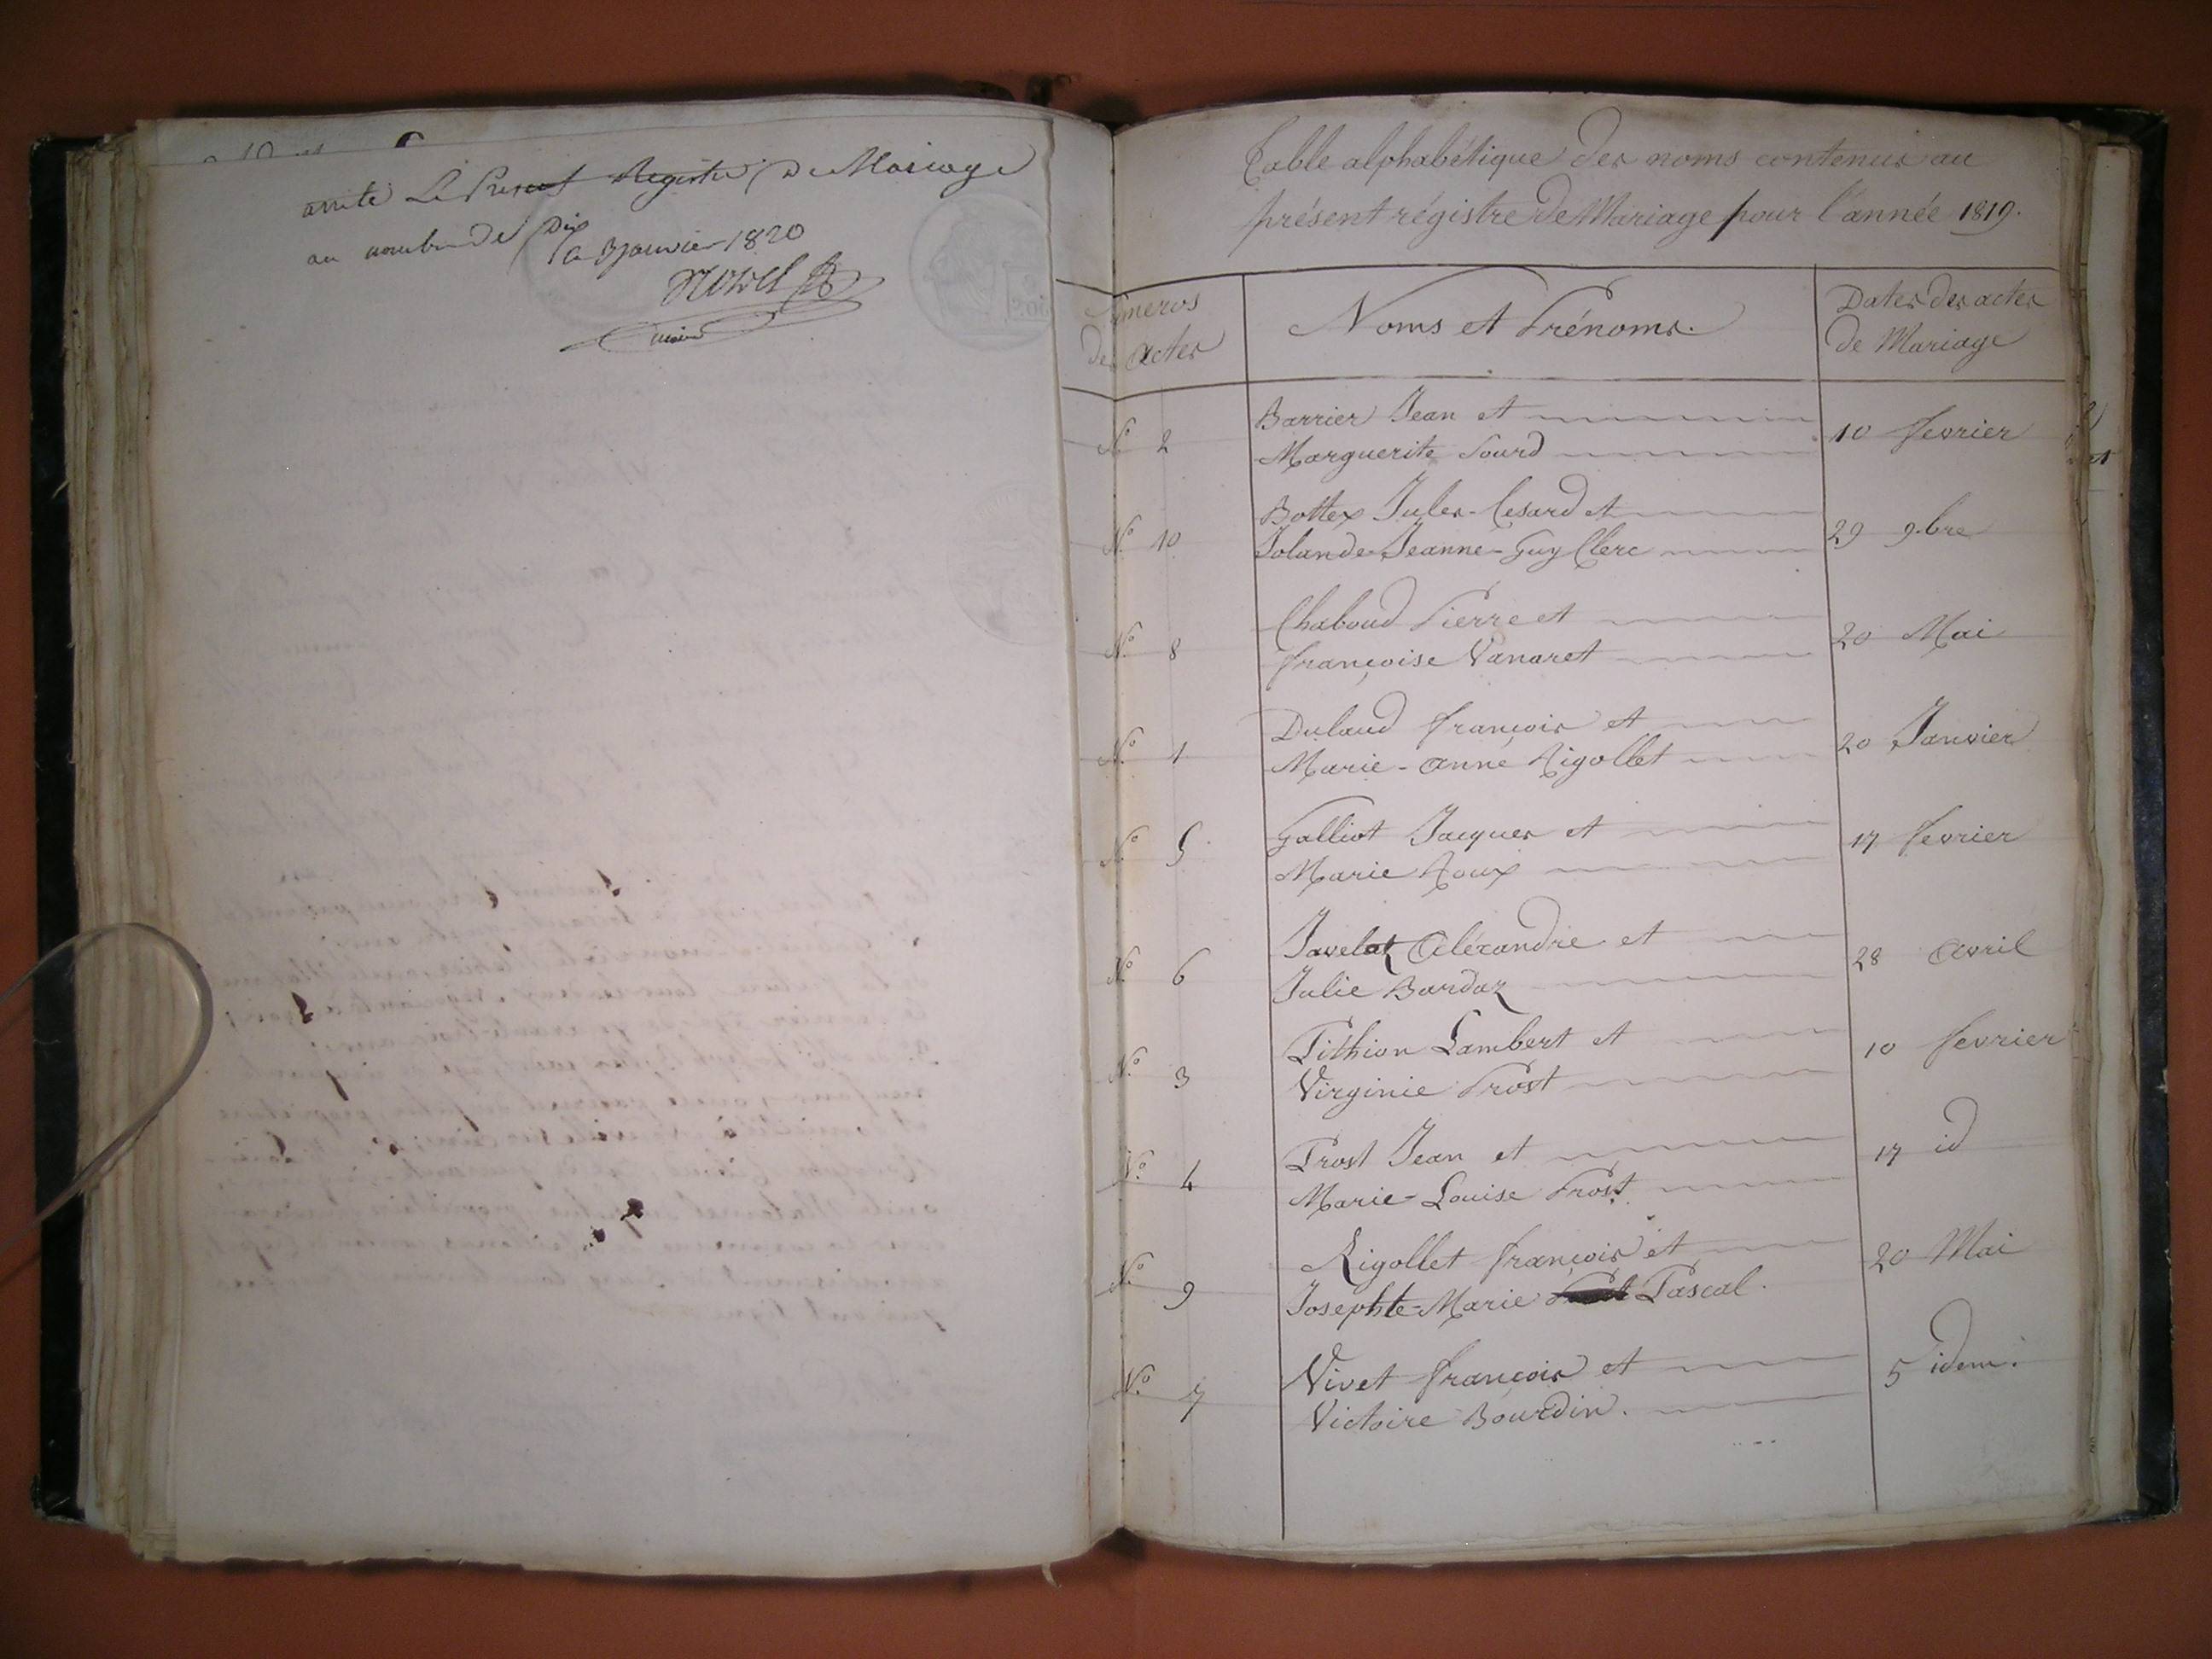 arrêté Le Present Registre De Mariage
au nombre de Dix
a 3 janvier 1820
maire
Table alphabétique des noms contenus au
présent régistre de Mariage pour l'année 1819.
Numeros
des actes
Noms et Prénoms.
Dates des actes
de Mariage
N.o 2
Barrier Jean et
Marguerite Sourd
10 fevrier
N.o 10
Bottex Jules-Cesard et
Jolande-Jeanne-Guy Clerc
29 9.bre
N.o 8
Chaboud Pierre et
françoise Vanaret
20 Mai
N.o 1
Dulaud françois et
Marie-anne Rigollet
20 Janvier
N.o 5
Galliot Jacques et
Marie Roux
17 fevrier
N.o 6
Javelot Aléxandre et
Julie Bardaz
28 avril
N.o 3
Pithion Lambert et
Virginie Prost
10 fevrier
N.o 4
Prost Jean et
Marie-Louise Prost
17 id
N.o 9
Rigollet françois et
Josephte-Marie Pascal.
20 Mai
N.o 7
Vivet françois et
Victoire Bourdin.
5 idem.